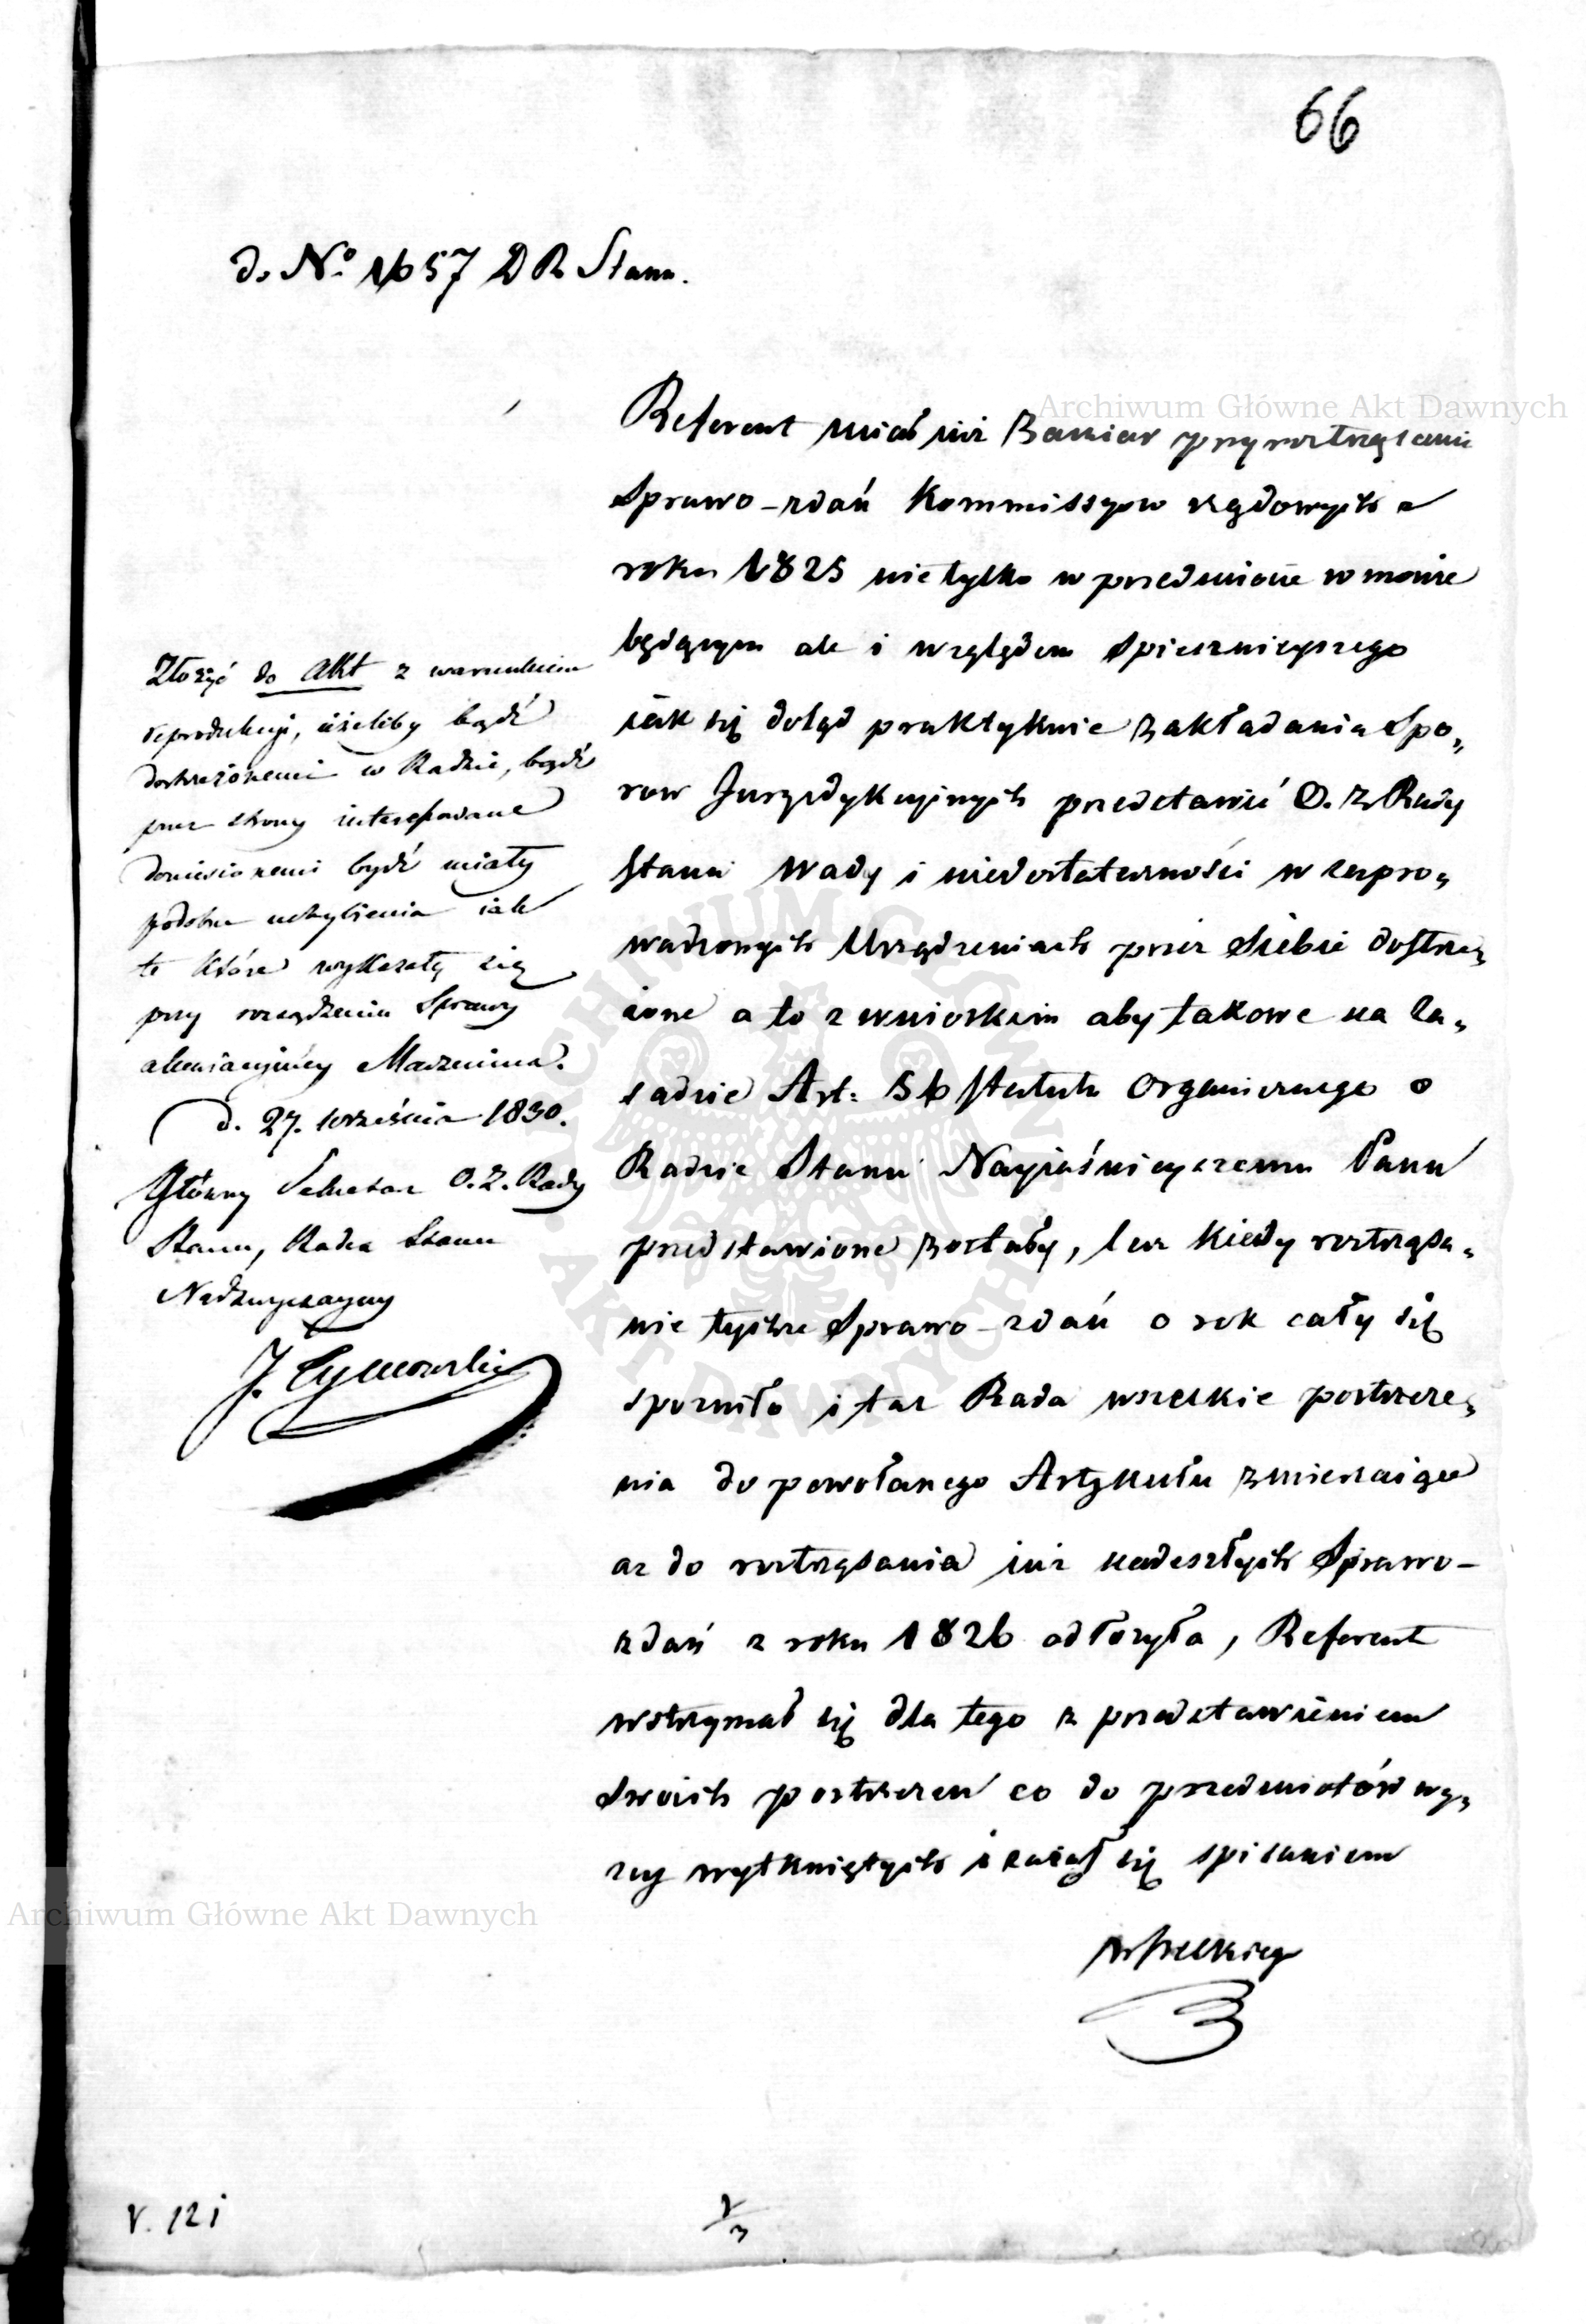 66
do No 1657 D R Stanu.
Referent miał iuż zamiar przy roztrząsaniu
Sprawo-zdań Kommissyow rządowych z
roku 1825 nietylko w przedmiocie w mowie
będącym ale i względem spiesznieyszego
iak się dotąd praktykuie zakładania Spo„
row Juryzdykcyinych przedstawić O. Z. Rady
Stanu wady i niedostateczności w zapro„
wadzonych Urządzeniach przez siebie dostrze„
żone a to z wnioskiem aby takowe na za„
sadzie Art: 36 Statutu Organicznego o
Radzie Stanu Nayiaśnieyszemu Panu
przedstawione zostały, lecz kiedy roztrząsa„
nie tychże Sprawo-zdań o rok cały się
spozniło i taż Rada wszelkie postrzeże„
nia do powołanego Artykułu zmierzaiące
az do roztrząsania iuż nadeszłych Sprawo-
zdań z roku 1826 odłożyła, Referent
wstrzymał się dla tego z przedstawieniem
swoich postrzeżeń co do przedmiotów wy„
żey wytkniętych i zaiął się spisaniem
wszelkiego
Złożyć do Akt z warunkiem
reprodukcyi, ieżeliby bądź
dostrzeżonemi w Radzie, bądź
przez strony interessowane
doniesionemi bydź miały
podobne uchybienia iak
te które wykazały się
przy rozsądzeniu Sprawy
d. 27. września 1830.
Główny Sekretarz O. Z. Rady
Stanu, Radca Stanu
Nadzwyczayny
J. Tymowski
V. 121
Archiwum Główne Akt Dawnych
Archiwum Główne Akt Dawnych
ARCHIWUM GŁÓWNE AKT DAWNYCH